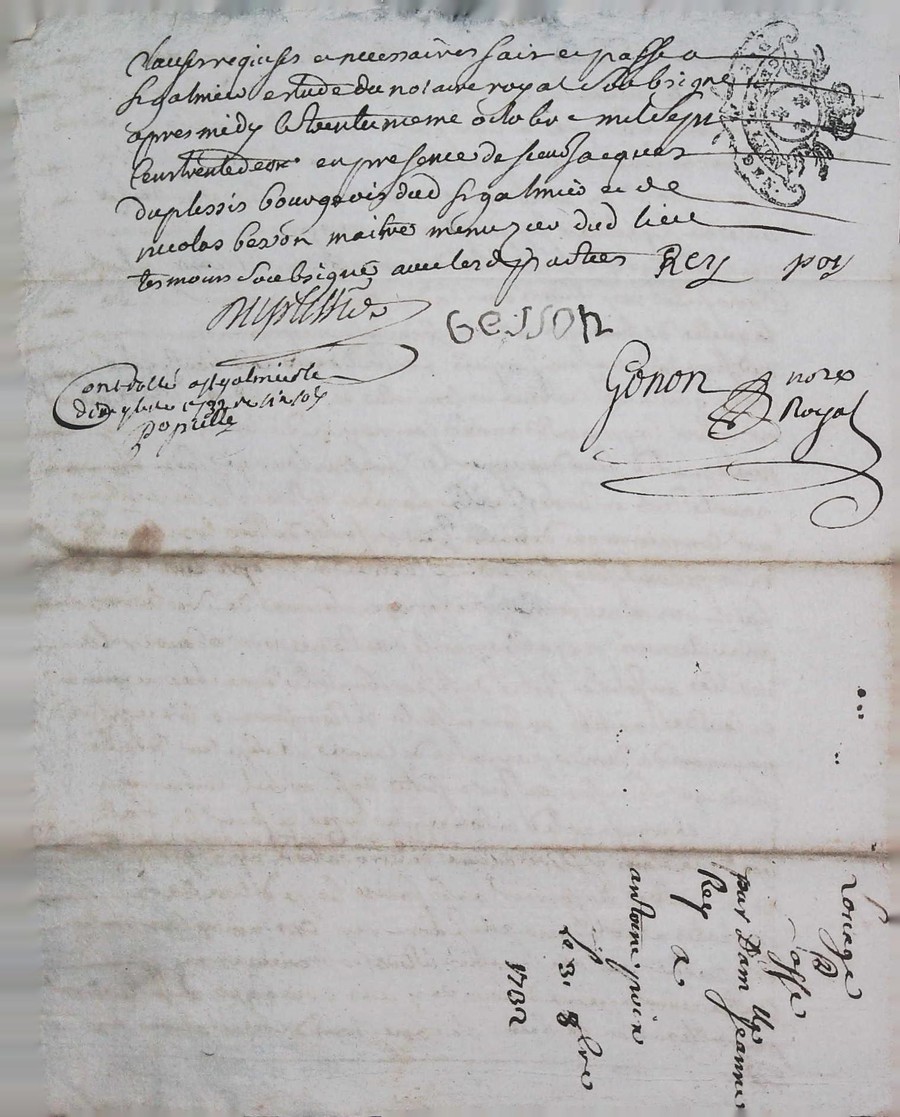 Clauses requises et necessaires fait et passé a
St galmier etude du notaire royal Soubsigne
apres midy le trentunieme octobre mil sept
cent trente deux en presence de sieur Jacques
duplessis bourgeois dud St galmier et de
nicolas besson maitre menuzier dud lieu
temoins Soubsignés avec lesd parties Rey poy
Duplessis
besson
Gonon nore
Royal
Controllé a St galmier le
1732
Louage
par Dam lle Jeanne
Rey a
antoine
Le 3. 8bre
1732